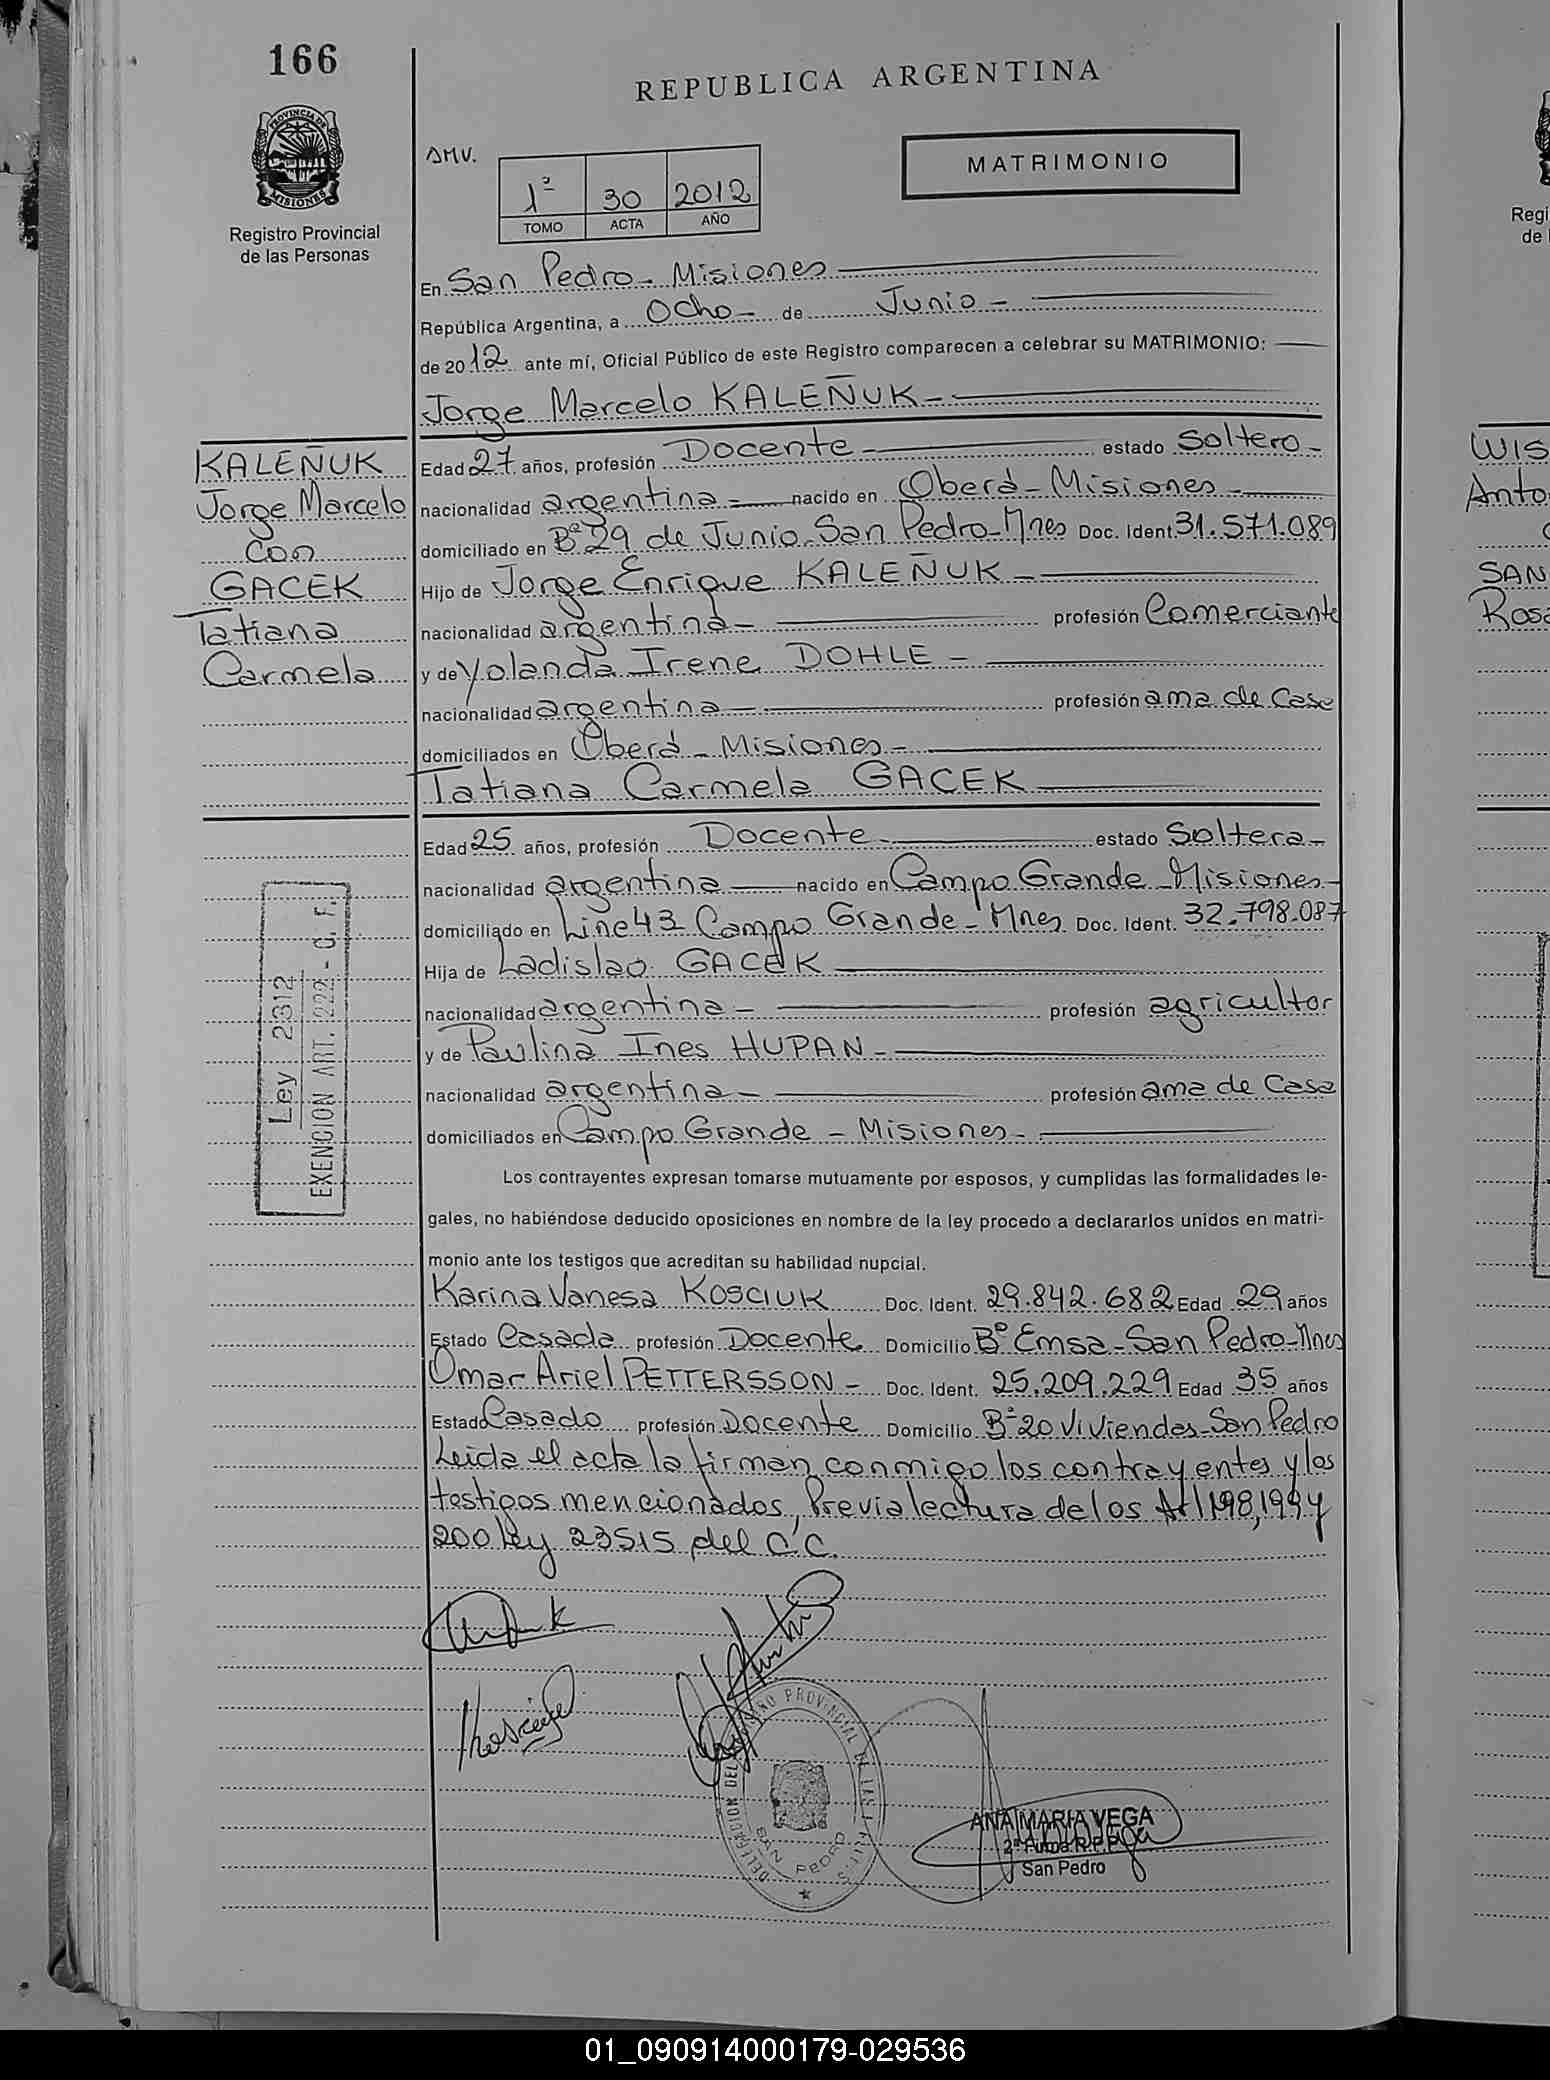 166
REPUBLICA ARGENTINA
PROVINCIA DE
MISIONES
Registro Provincial
de las Personas
SMV.
1º 30 2012
TOMO ACTA AÑO
MATRIMONIO
En San Pedro - Misiones
República Argentina, a Ocho - de Junio -
de 2012 ante mí, Oficial Público de este Registro comparecen a celebrar su MATRIMONIO:
Jorge Marcelo KALEÑUK -
KALEÑUK
Jorge Marcelo
con
GACEK
Tatiana
Carmela
Edad 27 años, profesión Docente estado Soltero -
nacionalidad argentina - nacido en Oberá - Misiones -
domiciliado en Bº 29 de Junio San Pedro - Mnes Doc. Ident. 31.571.089
Hijo de Jorge Enrique KALEÑUK -
nacionalidad argentina - profesión Comerciante
y de Yolanda Irene DOHLE -
nacionalidad argentina - profesión ama de Casa
domiciliados en Oberá - Misiones -
Tatiana Carmela GACEK
Edad 25 años, profesión Docente - estado Soltera -
nacionalidad argentina nacido en Campo Grande - Misiones -
domiciliado en Line 43 Campo Grande - Mnes Doc. Ident. 32.798.087
Hija de Ladislao GACEK
nacionalidad argentina - profesión agricultor
y de Paulina Ines HUPAN -
nacionalidad argentina - profesión ama de Casa
domiciliados en Campo Grande - Misiones -
Ley 2312
EXENCION ART. 222 - C. F.
Los contrayentes expresan tomarse mutuamente por esposos, y cumplidas las formalidades le-
gales, no habiéndose deducido oposiciones en nombre de la ley procedo a declararlos unidos en matri-
monio ante los testigos que acreditan su habilidad nupcial.
Karina Vanesa KOSCIUK Doc. Ident. 29.842.682 Edad 29 años
Estado Casada profesión Docente Domicilio Bº Emsa - San Pedro - Mnes
Omar Ariel PETTERSSON - Doc. Ident. 25.209.229 Edad 35 años
Estado Casado profesión Docente Domicilio Bº 20 Viviendas - San Pedro
Leida el acta la firman conmigo los contrayentes y los
testigos mencionados, Previa lectura de los Art 198, 199 y
200 Ley 23515 del C.C.
DELEGACION DEL REGISTRO PROVINCIAL DE LAS
SAN PEDRO
ANA MARIA VEGA
San Pedro
Regi
de l
WIS
Anto
SAN
Rosa
01_090914000179-029536